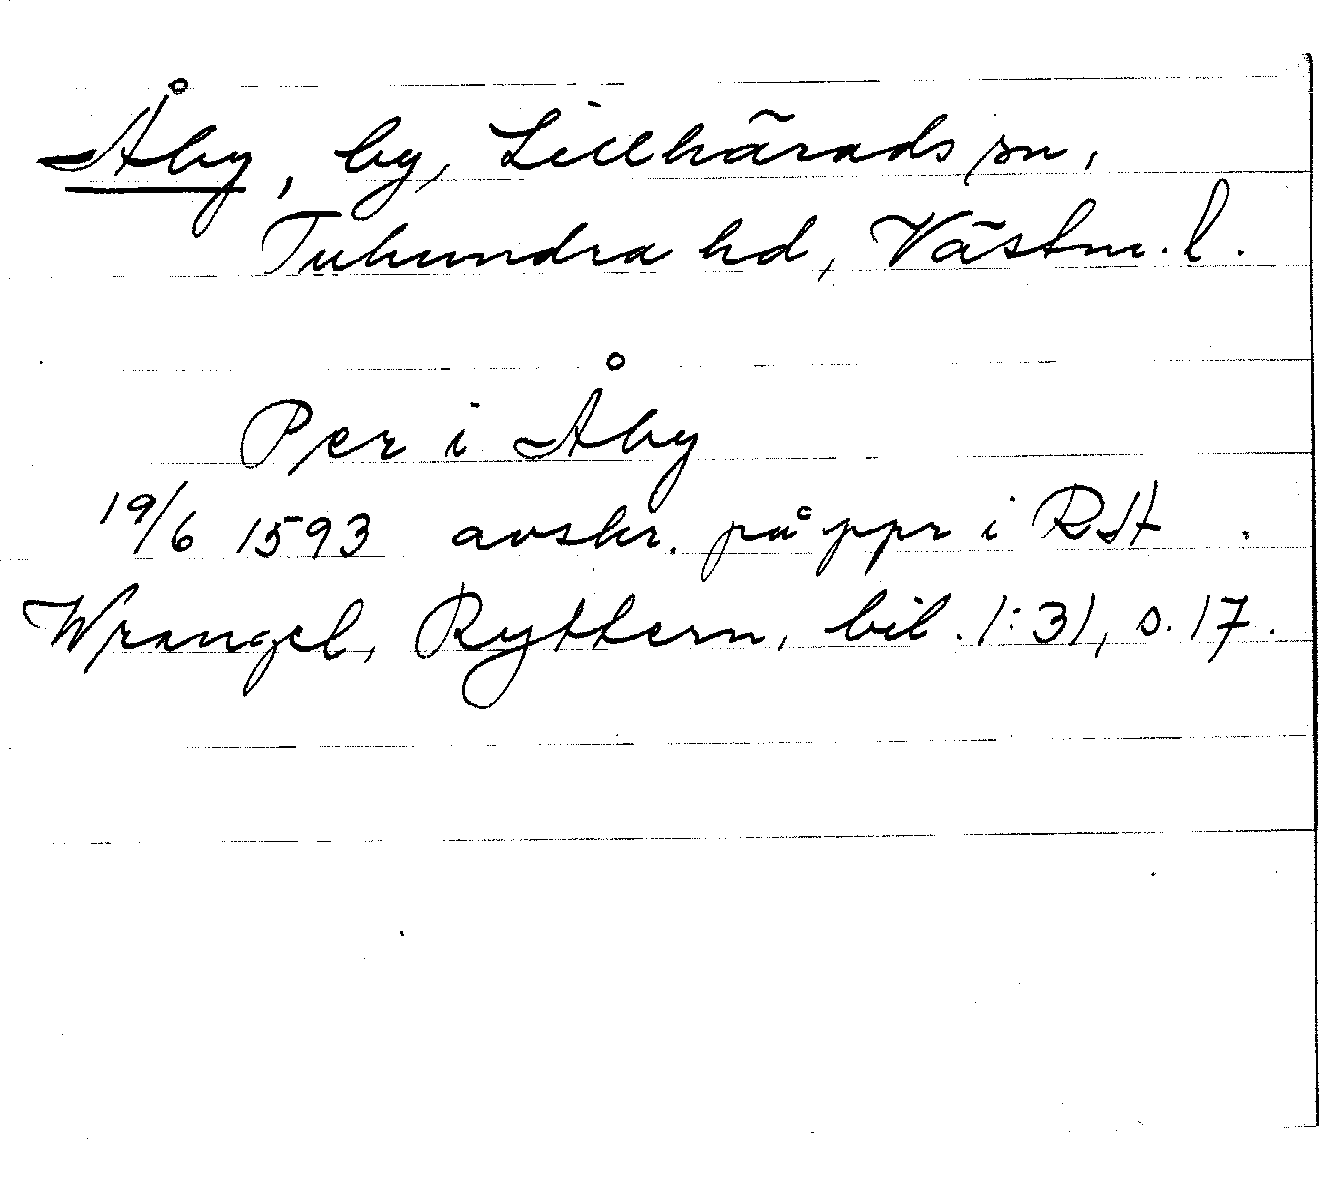 Åby, by, Lillhärads sn,
Tuhundra hd, Västm. l.
Per i Åby
19/6 1593 avskr. på ppr i RA.
Wrangel, Ryttern, bil. 1:31, s. 17.